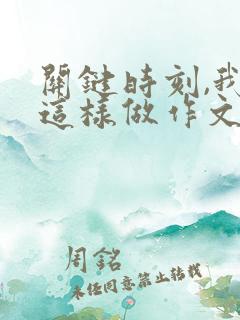 關鍵時刻,我
這樣做作文
周銘
未任同意禁止转载